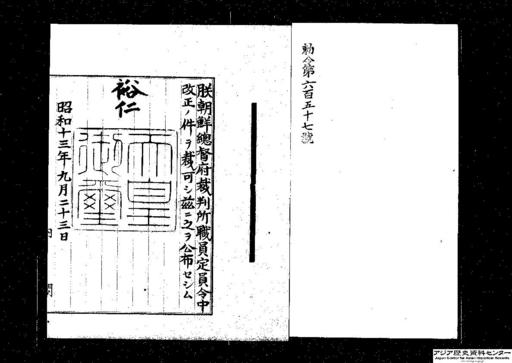 勅令第六百五十七號
朕朝鮮總督府裁判所職員定員令中
改正ノ件ヲ裁可シ茲ニ之ヲ公布セシム
裕仁
天皇
御璽
昭和十三年九月二十三日
アジア歴史資料センター
Japan Center for Asian Historical Records